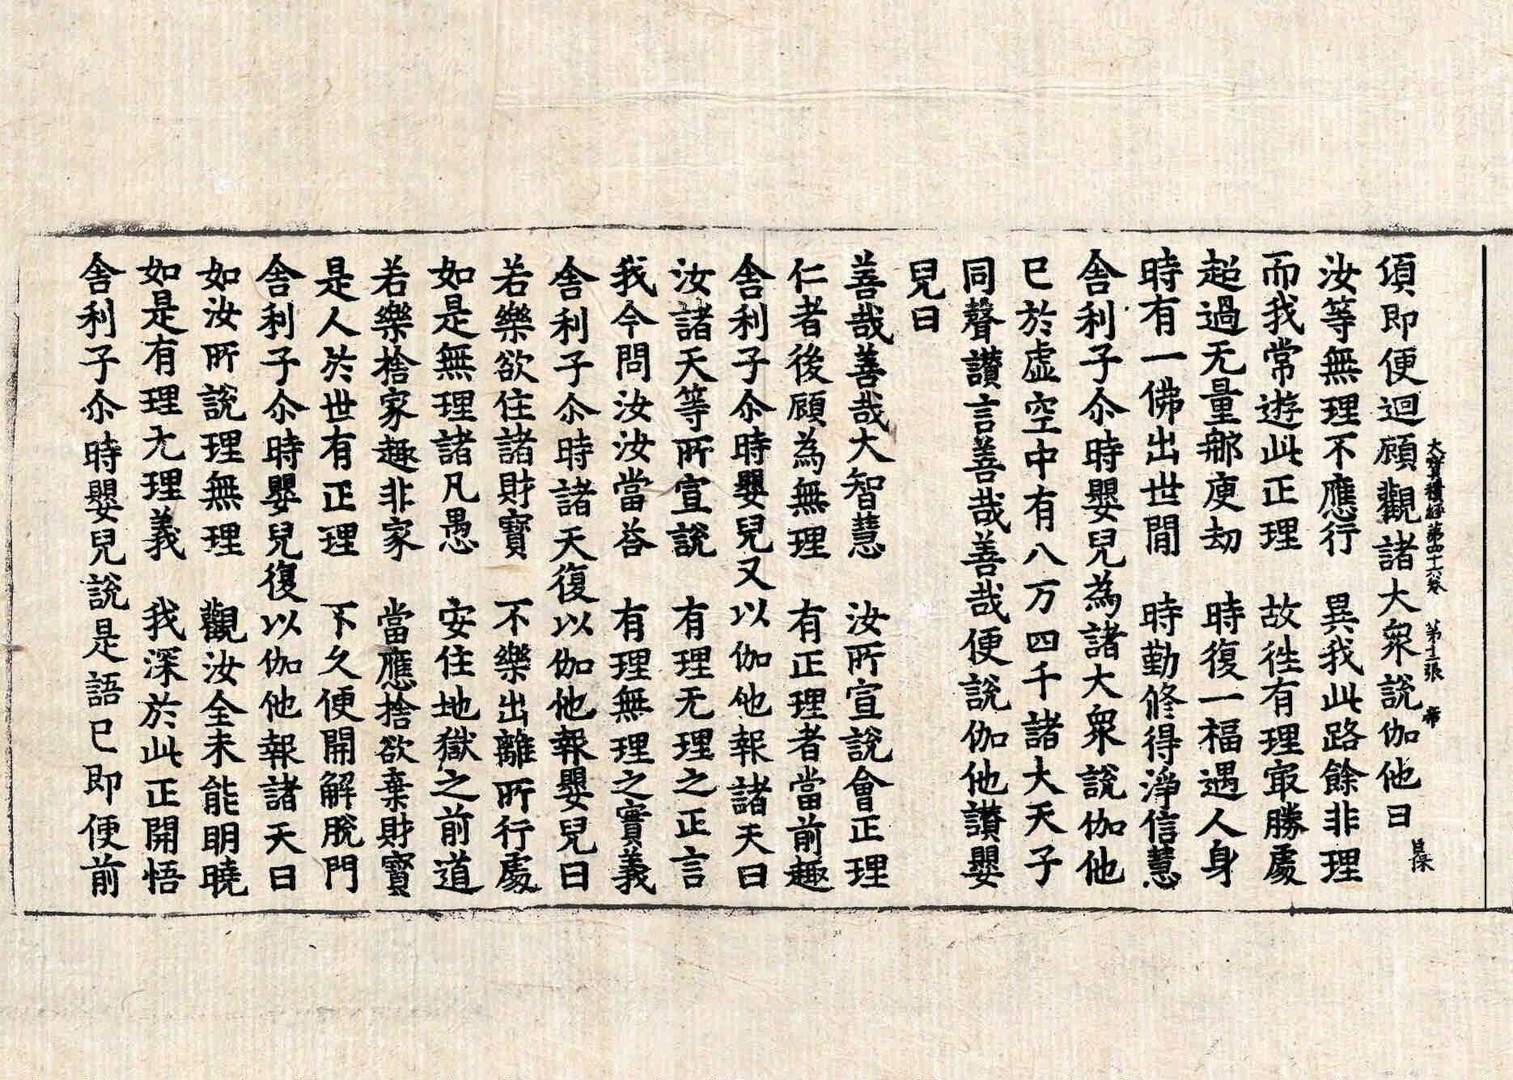 大寶積經第四十六卷 第 張 帝
湏即便迴顧觀諸大衆說伽他曰
汝等無理不應行 異我此路餘非理
而我常遊此正理 故徃有理冣勝處
超過无量郍庾劫 時復一福遇人身
時有一佛出世閒 時勤修得淨信慧
舎利子尒時嬰兒為諸大衆說伽他
已於虛空中有八万四千諸大天子
同聲讃言善哉善哉便說伽他讃嬰
兒曰
善哉善哉大智慧 汝所宣說會正理
仁者後顧為無理 有正理者當前趣
舎利子尒時嬰兒又以伽他報諸天曰
汝諸天等所宣說 有理无理之正言
我今問汝汝當荅 有理無理之實義
舎利子尒時諸天復以伽他報嬰兒曰
若樂欲住諸財寶 不樂出離所行處
如是無理諸凡愚 安住地獄之前道
若樂捨家趣非家 當應捨欲棄財寶
是人於世有正理 不久便開解脫門
舎利子尒時嬰兒復以伽他報諸天曰
如汝所說理無理 觀汝全未能明曉
如是有理无理義 我深於此正開悟
舎利子尒時嬰兒說是語已即便前